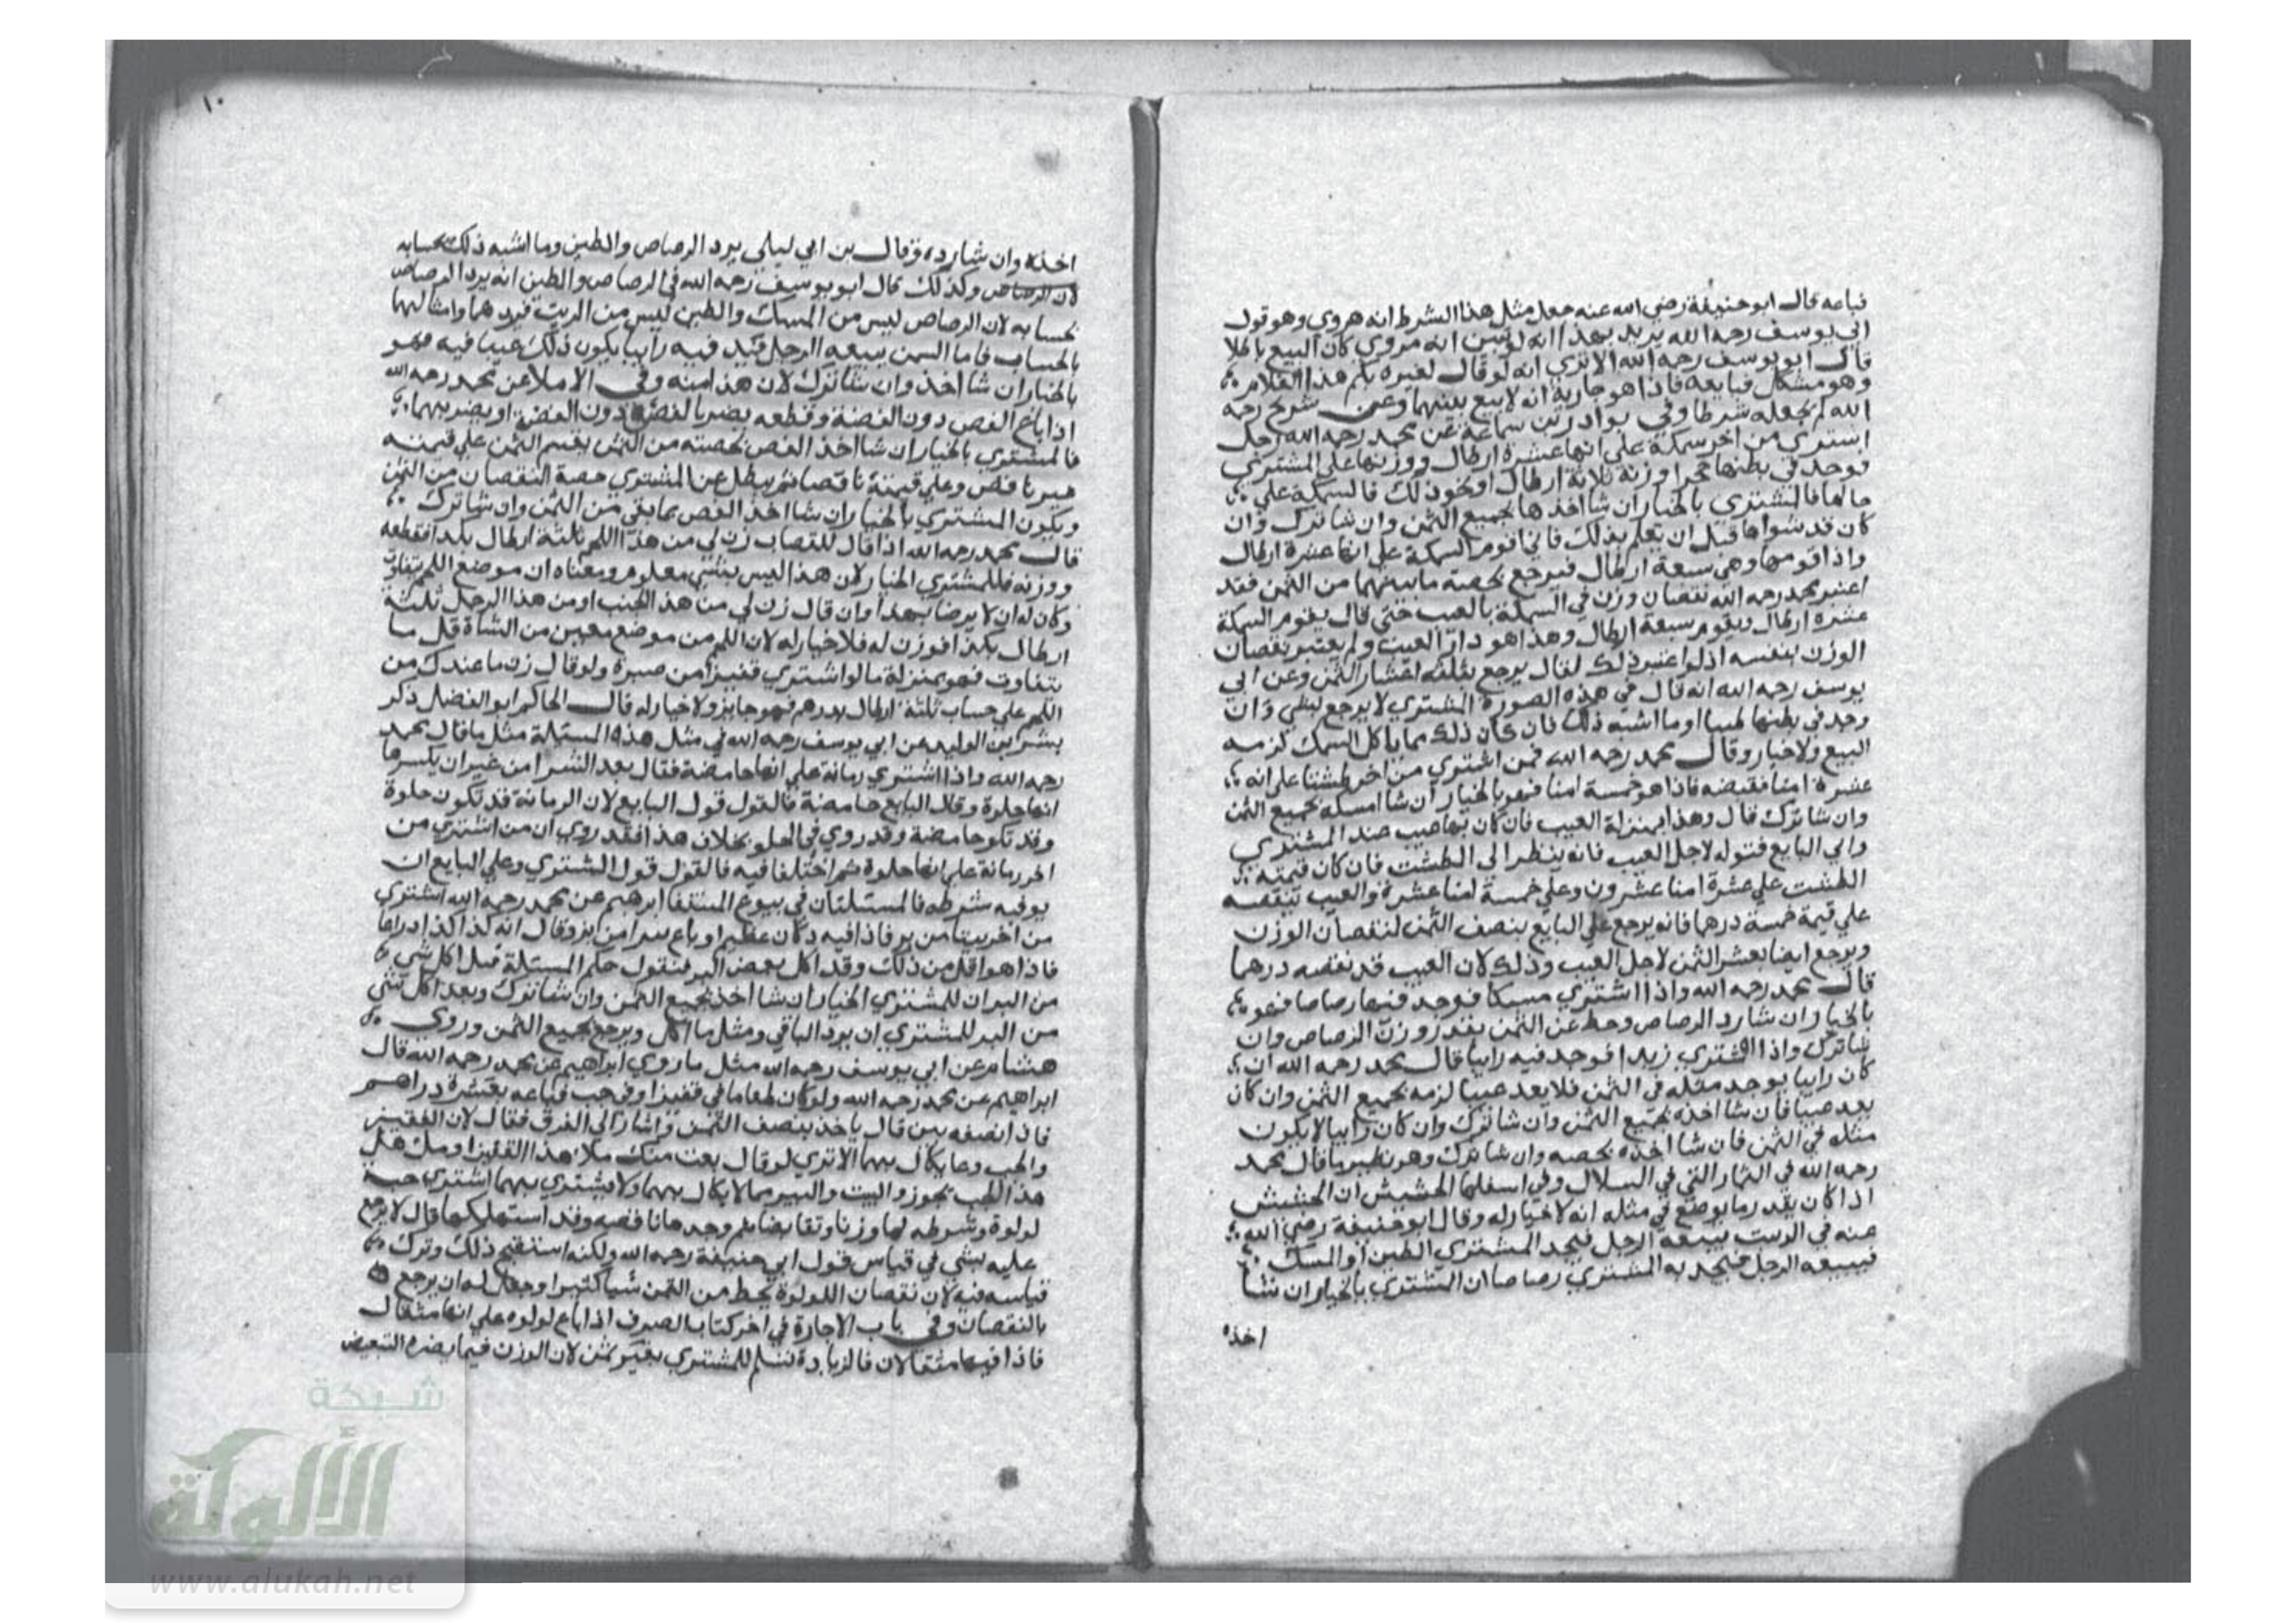 فباعه قال ابو حنيفة رضي الله عنه جعل مثل هذا الشرط انه هروي وهو قول
ابي يوسف رحمه الله يريد بهذا انه لو تبين انه مروي كان البيع باطلا
قال ابو يوسف رحمه الله الا تري انه لو قال لغيره بكم هذا الغلام
وهو مشكل فبايعه فاذا هو جارية انه لا بيع بينهما وعن شريح رحمه
الله لم يجعله شرطا وفي نوادر بن سماعة عن محمد رحمه الله رجل
اشتري من اخر سمكة علي انها عشرة ارطال ووزنها علي المشتري
فوجد في بطنها حجرا وزنه ثلاثة ارطال او نحو ذلك فالسمكة علي
حالها فالمشتري بالخيار ان شا اخذها بجميع الثمن وان شا ترك وان
كان قد شواها قبل ان يعلم بذلك فاني اقوم السمكة علي انها عشرة ارطال
واذا قومها وهي سبعة ارطال فيرجع بحصة ما بينهما من الثمن فقد
اعتبر محمد رحمه الله نقصان وزن في السمكة بالعيب حتي قال يقوم السمكة
عشرة ارطال ويقوم سبعة ارطال وهذا هو دار العيب ولم يعتبر نقصان
الوزن بنفسه اذ لو اعتبر ذلك لقال يرجع بثلثة اعشار الثمن وعن ابي
يوسف رحمه الله انه قال في هذه الصورة المشتري لا يرجع بشي وان
وجد في بطنها طينا او ما اشبه ذلك فان كان ذلك مما ياكل السمك لزمه
البيع ولا خيار وقال محمد رحمه الله فمن اشتري من اخر طشتا علي انه
عشرة امنا فقبضه فاذا هو خمسة امنا فهو بالخيار ان شا امسكه بجميع الثمن
وان شا ترك قال وهذا بمنزلة العيب فان كان بها عيب عند المشتري
وابي البايع قبوله لاجل العيب فانه ينظر الي الطشت فان كان قيمته
الطشت علي عشرة امنا عشرون وعلي خمسة امنا عشرة والعيب ينقصه
علي قيمة خمسة درهما فانه يرجع علي البايع بنصف الثمن لنقصان الوزن
ويرجع ايضا بعشر الثمن لاجل العيب وذلك لان العيب قد نقصه درهما
قال محمد رحمه الله واذا اشتري مسكا فوجد فيها رصاصا فهو
بالخيار ان شا رد الرصاص وحط عن الثمن بقدر وزن الرصاص وان
شا ترك واذا اشتري زبدا فوجد فيه رابيا قال محمد رحمه الله ان
كان رابيا يوجد مثله في الثمن فلا يعد عيبا لزمه بجميع الثمن وان كان
يعد عيبا فان شا اخذه بجميع الثمن وان شا ترك وان كان رابيا لا يكون
مثله في الثمن فان شا اخذه بحصه وان شا ترك وهو نظير ما قال محمد
رحمه الله في الثمار التي في السلال وفي اسفلها الحشيش ان الحشيش
اذا كان بقدر ما يوضع في مثله انه لا خيار له وقال ابو حنيفة رضي الله
عنه في الزيت يبيعه الرجل فيجد المشتري الطين او المسك
فيبيعه الرجل فيجد به المشتري رصاصا ان المشتري بالخيار ان شا
اخذه
١٠
اخذه وان شا رده وقال بن ابي ليلي يرد الرصاص والطين وما اشبه ذلك بحسابه
لان الرصاص وكذلك قال ابو يوسف رحمه الله في الرصاص والطين انه يرد الرصاص
بحسابه لان الرصاص ليس من المسك والطين ليس من الزيت فيردهما وامثالهما
بالحساب فاما السمن يبيعه الرجل فيجد فيه رابيا يكون ذلك عيبا فيه فهو
بالخيار ان شا اخذ وان شا ترك لان هذا منه وفي الاملا عن محمد رحمه الله
اذا باع الفص دون الفضة وقطعه يضر بالفص دون الفضة او يضر بهما
فالمشتري بالخيار ان شا اخذ الفص بحصته من الثمن يقسم الثمن علي قيمته
غير ناقص وعلي قيمته ناقصا ثم يبطل عن المشتري حصة النقصان من الثمن
ويكون المشتري بالخيار ان شا اخذ الفص بما بقي من الثمن وان شا ترك
قال محمد رحمه الله اذا قال للقصاب زن لي من هذا اللحم ثلثة ارطال بكذا فقطعه
ووزنه فللمشتري الخيار لان هذا ليس بشي معلوم ومعناه ان موضع اللحم يتفاوت
وكان له ان لا يرضا بهذا وان قال زن لي من هذ الجنب او من هذا الرجل ثلثة
ارطال بكذا فوزن له فلا خيار له لان اللحم من موضع معين من الشاة قل ما
يتفاوت فهو بمنزلة ما لو اشتري قفيزا من صبرة ولو قال زن ما عندك من
اللحم علي حساب ثلثة ارطال بدرهم فهو جايز ولا خيار له قال الحاكم ابو الفضل ذكر
بشر بن الوليد عن ابي يوسف رحمه الله في مثل هذه المسئلة مثل ما قال محمد
رحمه الله واذا اشتري رمانة علي انها حامضة فقال بعد الشرا من غير ان يكسرها
انها حلوة وقال البايع حامضة فالقول قول البايع لان الرمانة قد تكون حلوة
وقد تكو حامضة وقد روي في الحلو بخلاف هذا فقد روي ان من اشتري من
اخر رمانة علي انها حلوة ثم اختلفا فيه فالقول قول المشتري وعلي البايع ان
يوفيه شرطه فالمسئلتان في بيوع المنتقا ابرهيم عن محمد رحمه الله اشتري
من اخر بيتا من بر فاذا فيه دكان عظيم او باع من بر وقال انه كذا كذا ذراعا
فاذا هو اقل من ذلك وقد اكل بعض البر فنقول حكم المسئلة قبل اكل شي
من البر ان للمشتري الخيار ان شا اخذ بجميع الثمن وان شا ترك وبعد اكل شي
من البر للمشتري ان يرد الباقي ومثل ما اكل ويرجع بجميع الثمن وروي
هشام عن ابي يوسف رحمه الله مثل ما روي ابراهيم عن محمد رحمه الله قال
ابراهيم عن محمد رحمه الله ولو كان طعاما في قفيز او في حب فباعه بعشرة دراهم
فاذا نصفه تبن قال ياخذ بنصف الثمن واشار الي الفرق فقال لان القفيز
والحب وعا يكال بهما الا تري لو قال بعت منك ملا هذا القفيز او ملا هذ
هذ الحب يجوز والبيت والبير مما لا يكال بهما ولا يشتري بهما اشتري حبة
لولوة وشرطه لها وزنا وتقابضا ثم وجدها ناقصه وقد استهلكها قال لا يرجع
عليه بشي في قياس قول ابي حنيفة رحمه الله ولكنه استقبح ذلك وترك
قياسه فيه لان نقصان اللولوة يحط من الثمن شيا كثيرا وجعل له ان يرجع
بالنقصان وفي باب الاجارة في اخر كتاب الصرف اذا باع لولوه علي انها مثقال
فاذا فيها مثقالان فالزيادة تسلم للمشتري بغير ثمن لان الوزن فيما يضره التبعيض
شبكة
الألوكة
www.alukah.net